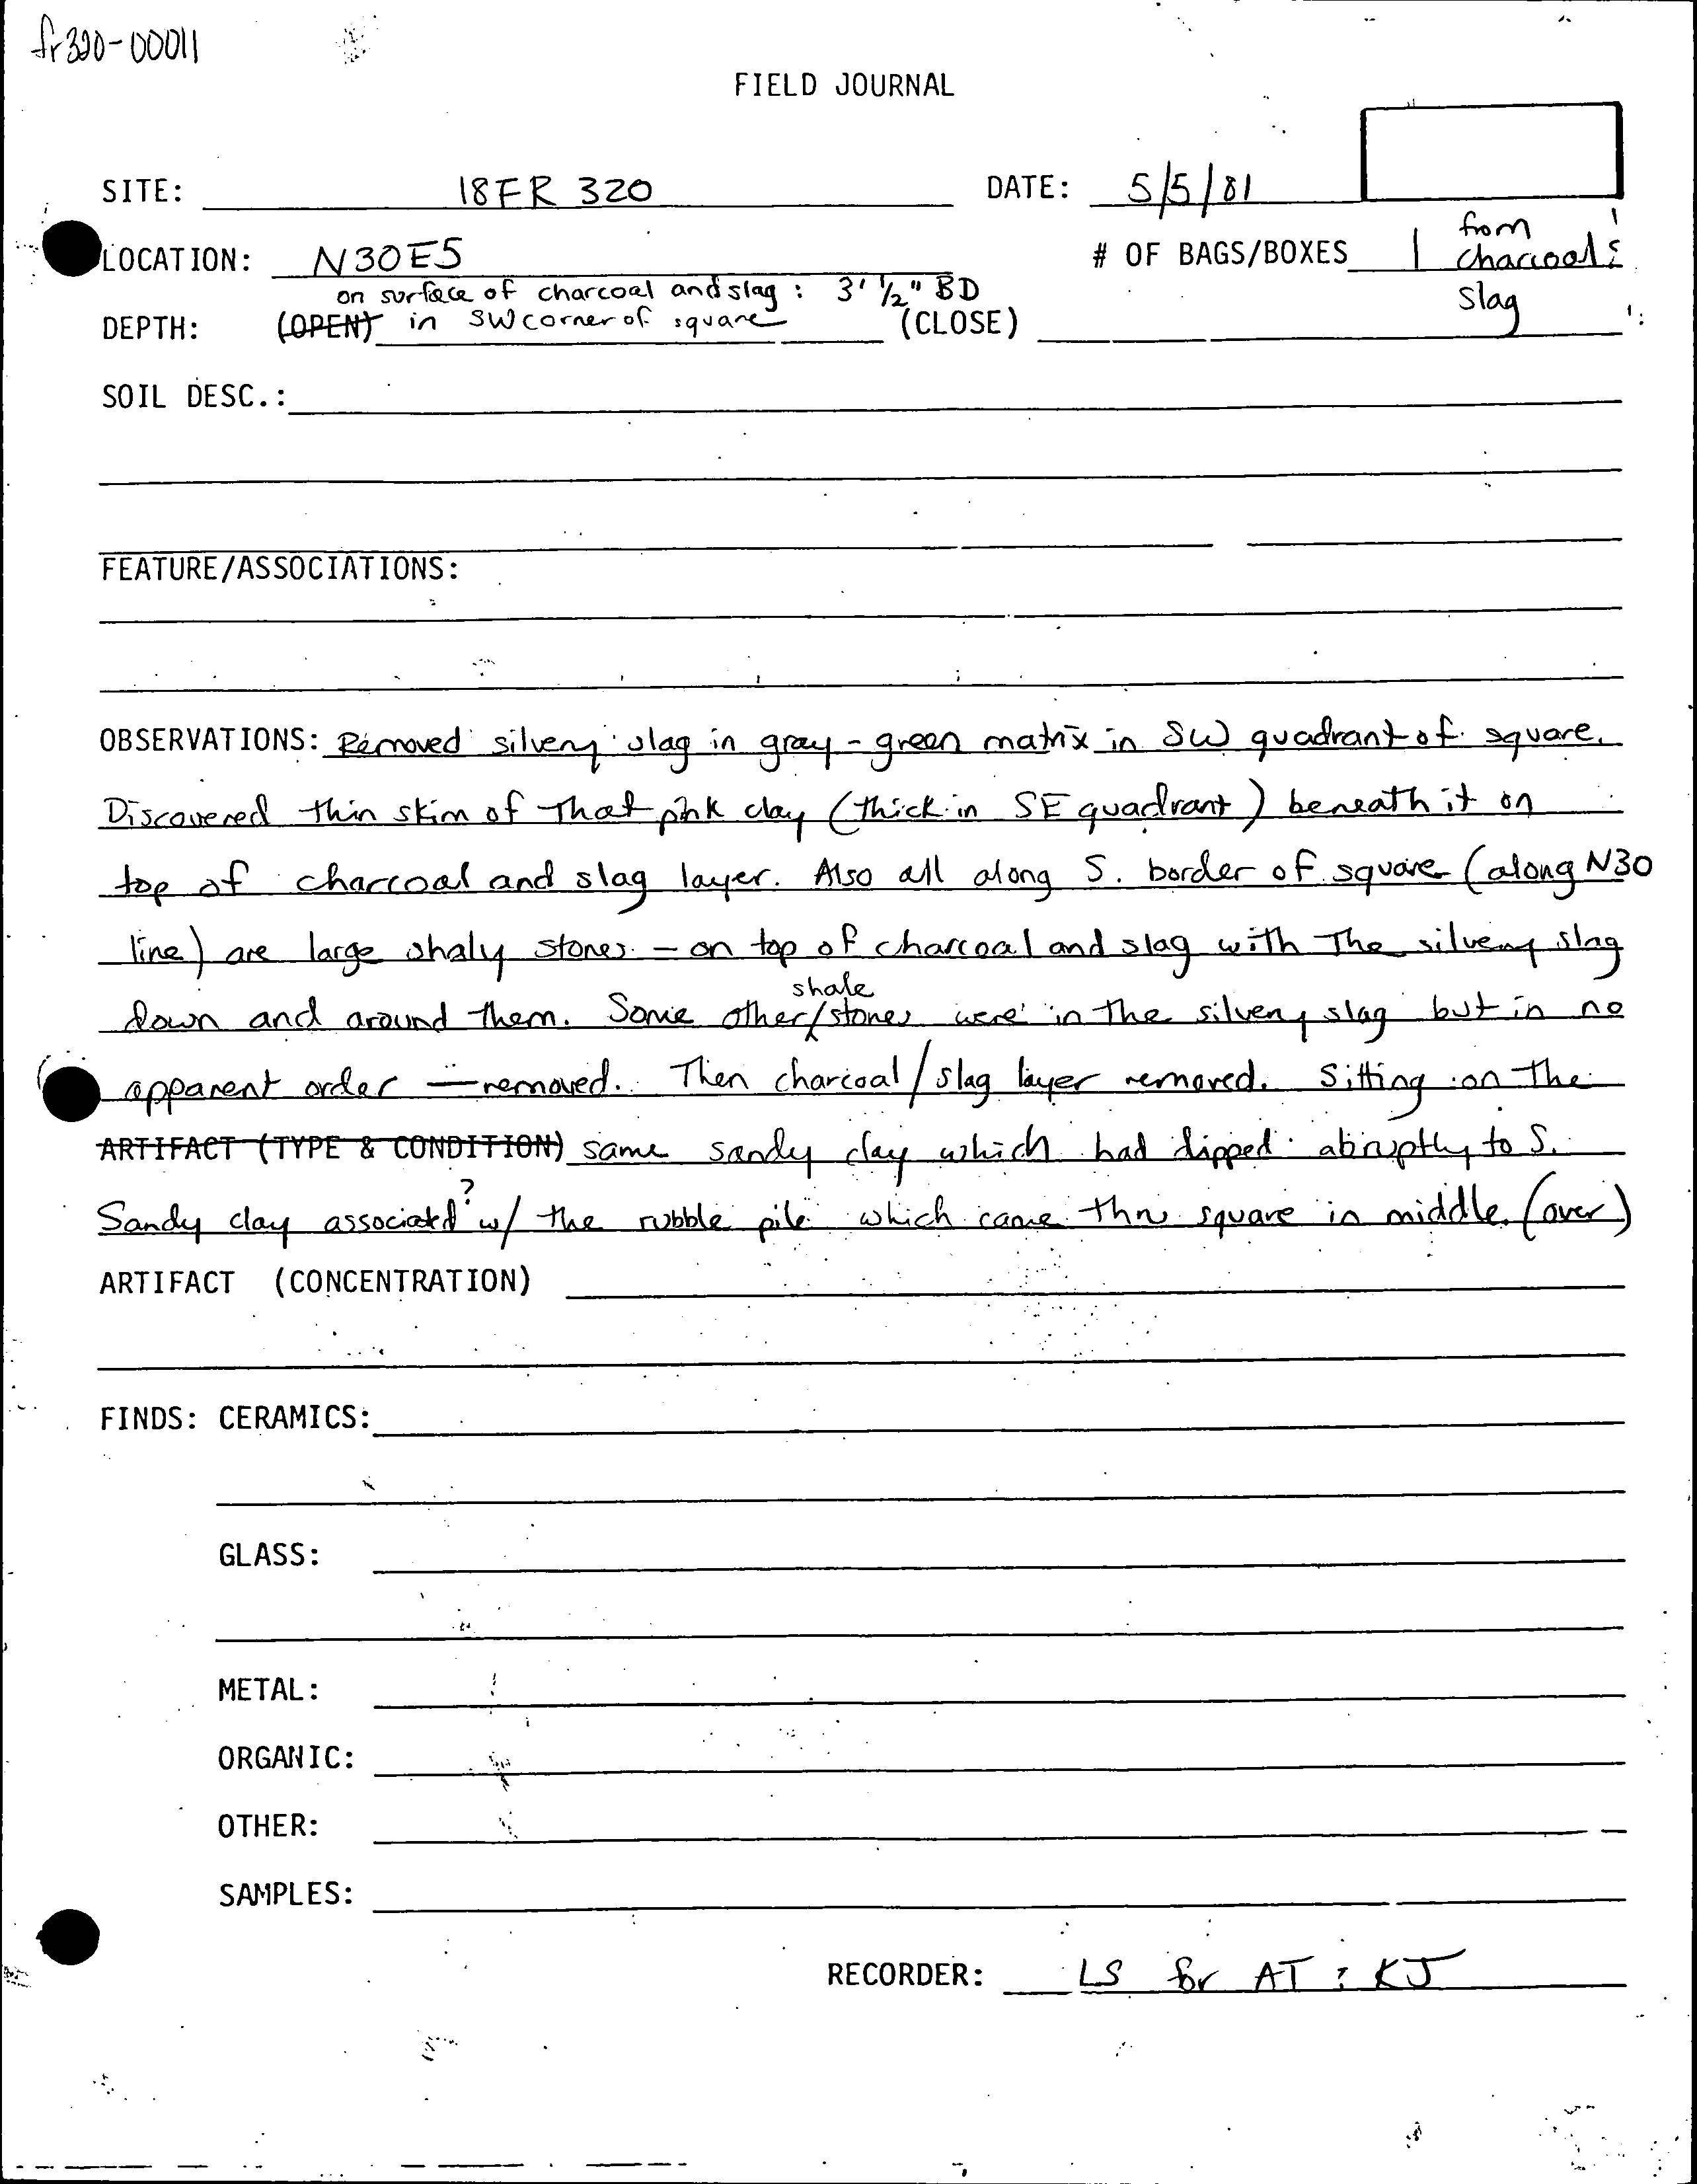 fr320-00011
FIELD JOURNAL
SITE: 18FR 320 DATE: 5/5/81
LOCATION: N30E5 # OF BAGS/BOXES 1 from charcoal & slag
on surface of charcoal and slag : 3' 1/2" BD
DEPTH: (OPEN) in SW corner of square (CLOSE)
SOIL DESC.:
FEATURE/ASSOCIATIONS:
OBSERVATIONS: Removed silvery slag in gray-green matrix in SW quadrant of square.
Discovered thin skim of that pink clay (thick in SE quadrant) beneath it on
top of charcoal and slag layer. Also all along S. border of square (along N30
line) are large shaly stones - on top of charcoal and slag with the silvery slag
down and around them. Some other shale stones were in the silvery slag but in no
apparent order — removed. Then charcoal/slag layer removed. Sitting on the
ARTIFACT (TYPE & CONDITION) same sandy clay which had dipped abruptly to S.
Sandy clay associated? w/ the rubble pile which came thru square in middle. (over)
ARTIFACT (CONCENTRATION)
FINDS: CERAMICS:
GLASS:
METAL:
ORGANIC:
OTHER:
SAMPLES:
RECORDER: LS for AT & KJ